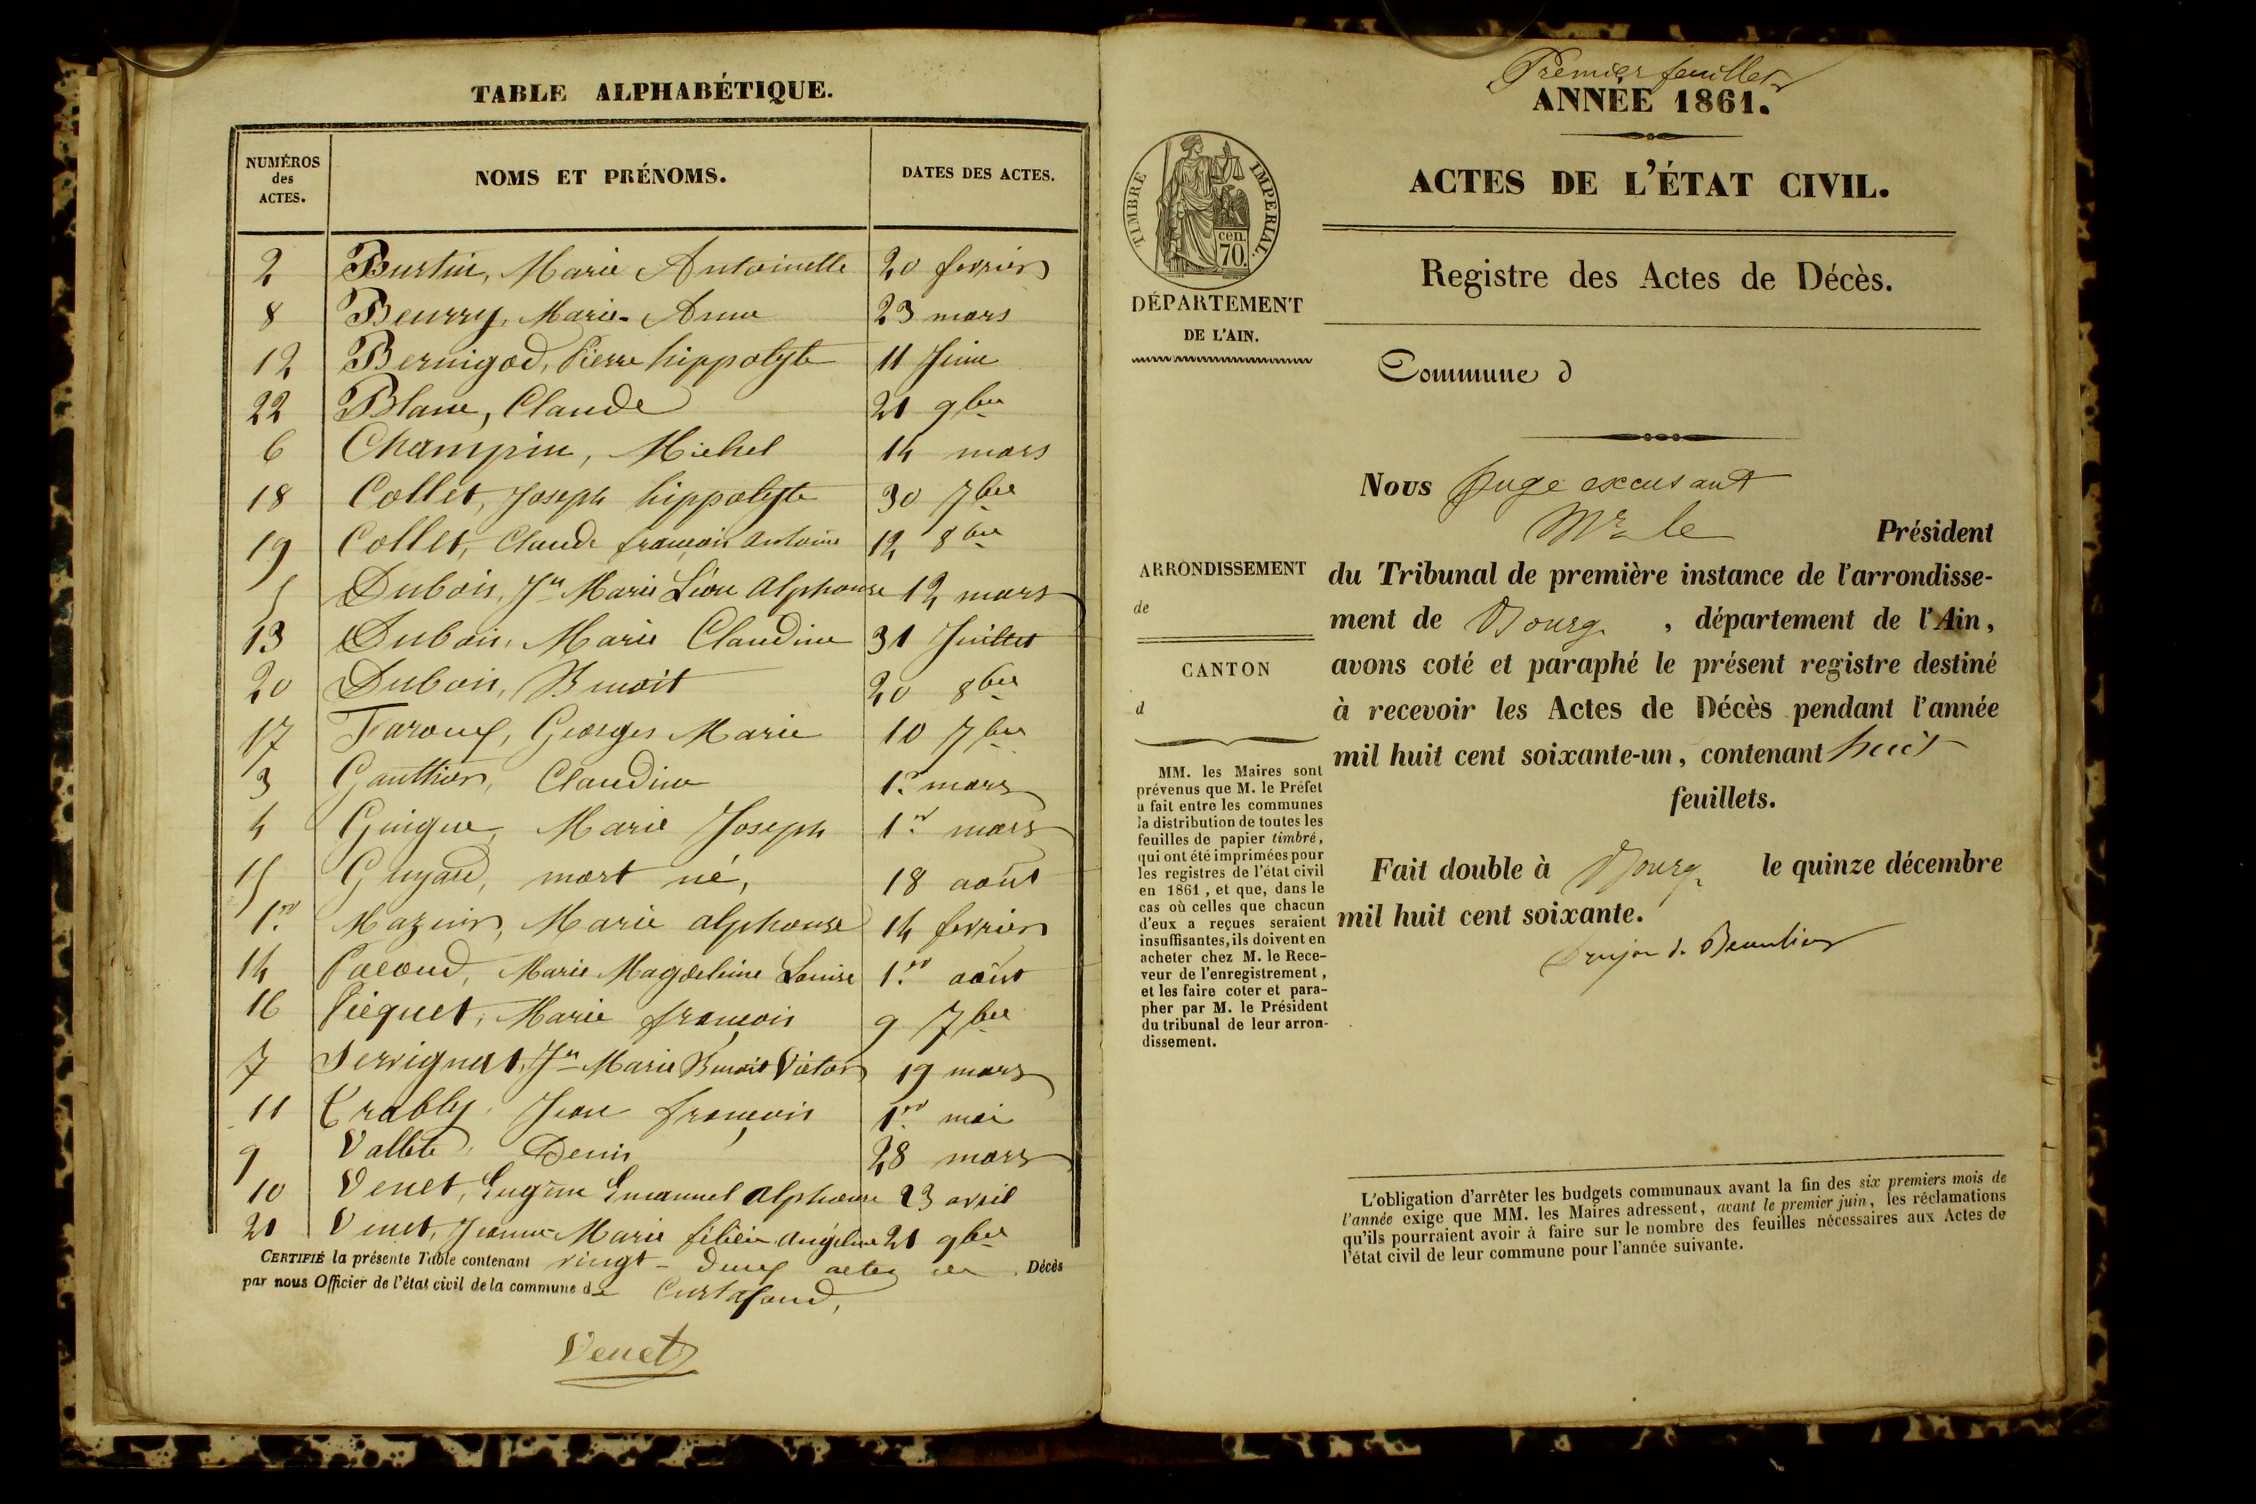 TABLE ALPHABÉTIQUE.
NUMÉROS des ACTES. NOMS ET PRÉNOMS. DATES DES ACTES.
2 Burtin, Marie Antoinette 20 fevrier
8 Beurry, Marie-Anne 23 mars
12 Bernigod, Pierre hippolyte 11 Juin
22 Blanc, Claude 21 9bre
6 Champin, Michel 14 mars
18 Collet, Joseph hippolyte 30 7bre
19 Collet, Claude françois antoine 12 8bre
5 Dubois, Jn Marie Léon alphonse 12 mars
13 Dubois, Marie Claudine 31 Juillet
20 Dubois, Benoit 20 8bre
17 Faroux, Georges Marie 10 7bre
3 Gauthier, Claudine 1er mars
4 Guigue, Marie Joseph 1er mars
15 Guyard, mort né, 18 août
1er Mazuir, Marie alphonse 14 fevrier
14 Pacoud, Marie Magdeleine Louise 1er août
16 Picquet, Marie françois 9 7bre
7 Servignat, Jn Marie Benoit Victor 19 mars
11 Trably Jean françois 1er mai
9 Vallete Denis 28 mars
10 Venet, Eugène Emanuel alphonse 23 avril
21 Venet, Jeanne-Marie angéline 21 9bre
CERTIFIÉ la présente Table contenant vingt-deux actes de Décès
par nous Officier de l'état civil de la commune de Curtafond,
Venet
Premier feuillet
ANNÉE 1861.
ACTES DE L'ÉTAT CIVIL.
TIMBRE IMPERIAL.
cen. 70.
Registre des Actes de Décès.
DÉPARTEMENT
DE L'AIN.
Commune d
Nous Juge excusant
Mr le Président
ARRONDISSEMENT
de
CANTON
d
du Tribunal de première instance de l'arrondisse-
ment de Bourg, département de l'Ain,
avons coté et paraphé le présent registre destiné
à recevoir les Actes de Décès pendant l'année
mil huit cent soixante-un, contenant huit
feuillets.
MM. les Maires sont
prévenus que M. le Préfet
a fait entre les communes
la distribution de toutes les
feuilles de papier timbré,
qui ont été imprimées pour
les registres de l'état civil
en 1861, et que, dans le
cas où celles que chacun
d'eux a reçues seraient
insuffisantes, ils doivent en
acheter chez M. le Rece-
veur de l'enregistrement,
et les faire coter et para-
pher par M. le Président
du tribunal de leur arron-
dissement.
Fait double à Bourg le quinze décembre
mil huit cent soixante.
de Beaulieu
L'obligation d'arrêter les budgets communaux avant la fin des six premiers mois de
l'année exige que MM. les Maires adressent, avant le premier juin, les réclamations
qu'ils pourraient avoir à faire sur le nombre des feuilles nécessaires aux Actes de
l'état civil de leur commune pour l'année suivante.